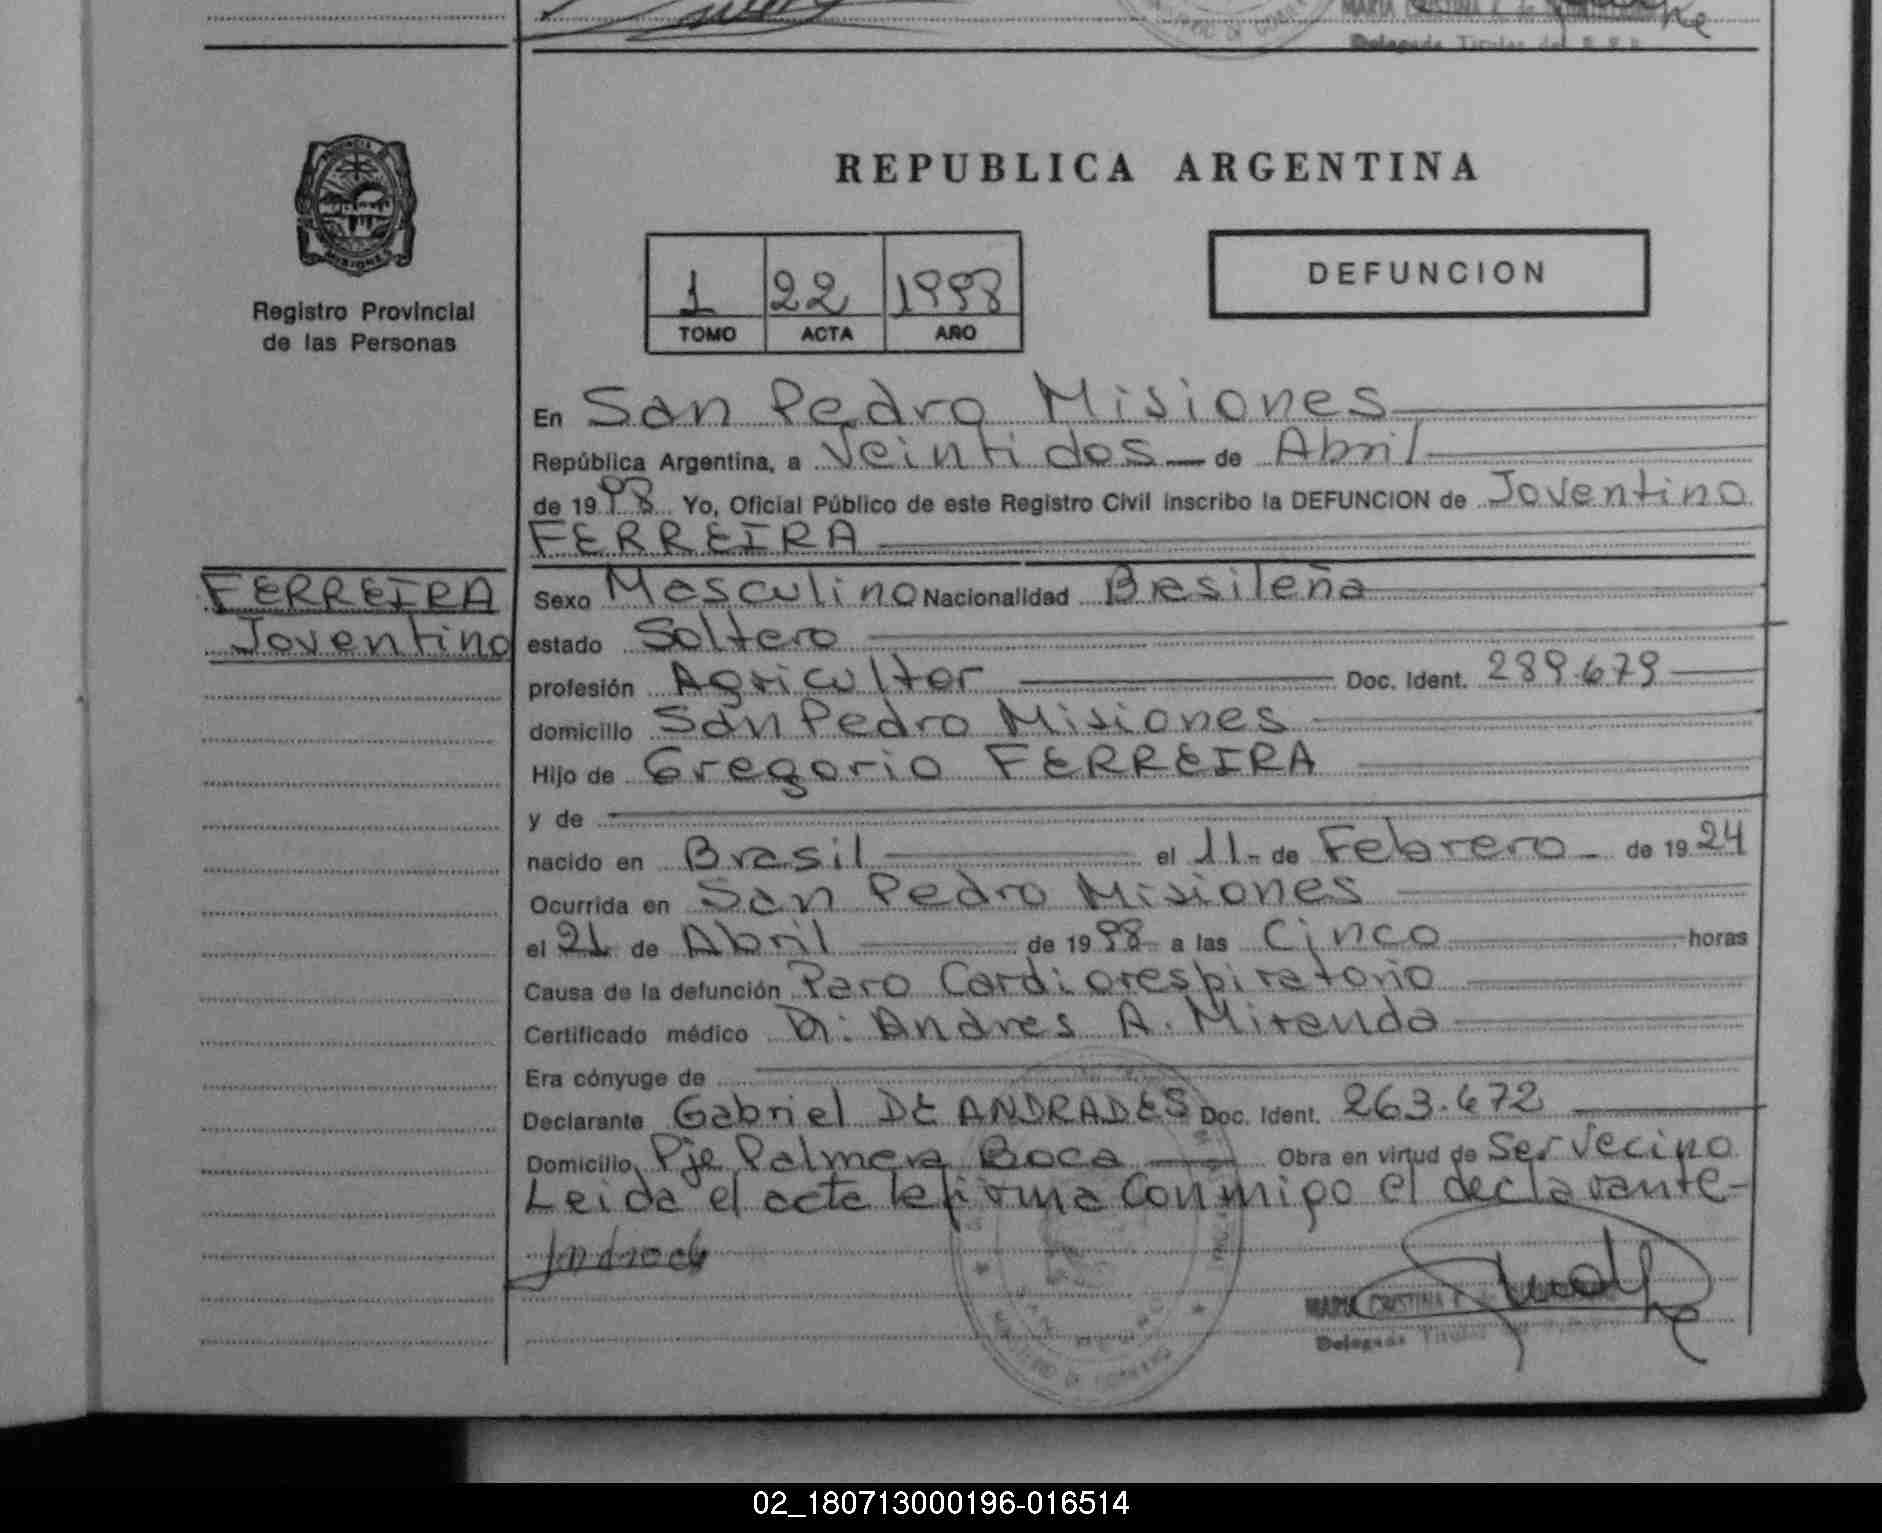 Delegada Titular del R.P.P.
PROVINCIA DE
MISIONES
Registro Provincial
de las Personas
REPUBLICA ARGENTINA
1 22 1998
TOMO ACTA AÑO
DEFUNCION
En San Pedro Misiones
República Argentina, a Veintidos de Abril
de 19 98 Yo, Oficial Público de este Registro Civil inscribo la DEFUNCION de Joventino
FERREIRA
FERREIRA
Joventino
Sexo Masculino Nacionalidad Brasileña
estado Soltero
profesión Agricultor Doc. Ident. 289.679
domicilio San Pedro Misiones
Hijo de Gregorio FERREIRA
y de
nacido en Brasil el 11 de Febrero de 19 24
Ocurrida en San Pedro Misiones
el 21 de Abril de 19 98 a las Cinco horas
Causa de la defunción Paro Cardiorespiratorio
Certificado médico Dr. Andres A. Miranda
Era cónyuge de
Declarante Gabriel DE ANDRADES Doc. Ident. 263.672
Domicilio Pje Palmera Boca Obra en virtud de Ser Vecino
Leida el acta la firma Conmigo el declarante
MARIA CRISTINA
Delegada Titular
02_180713000196-016514